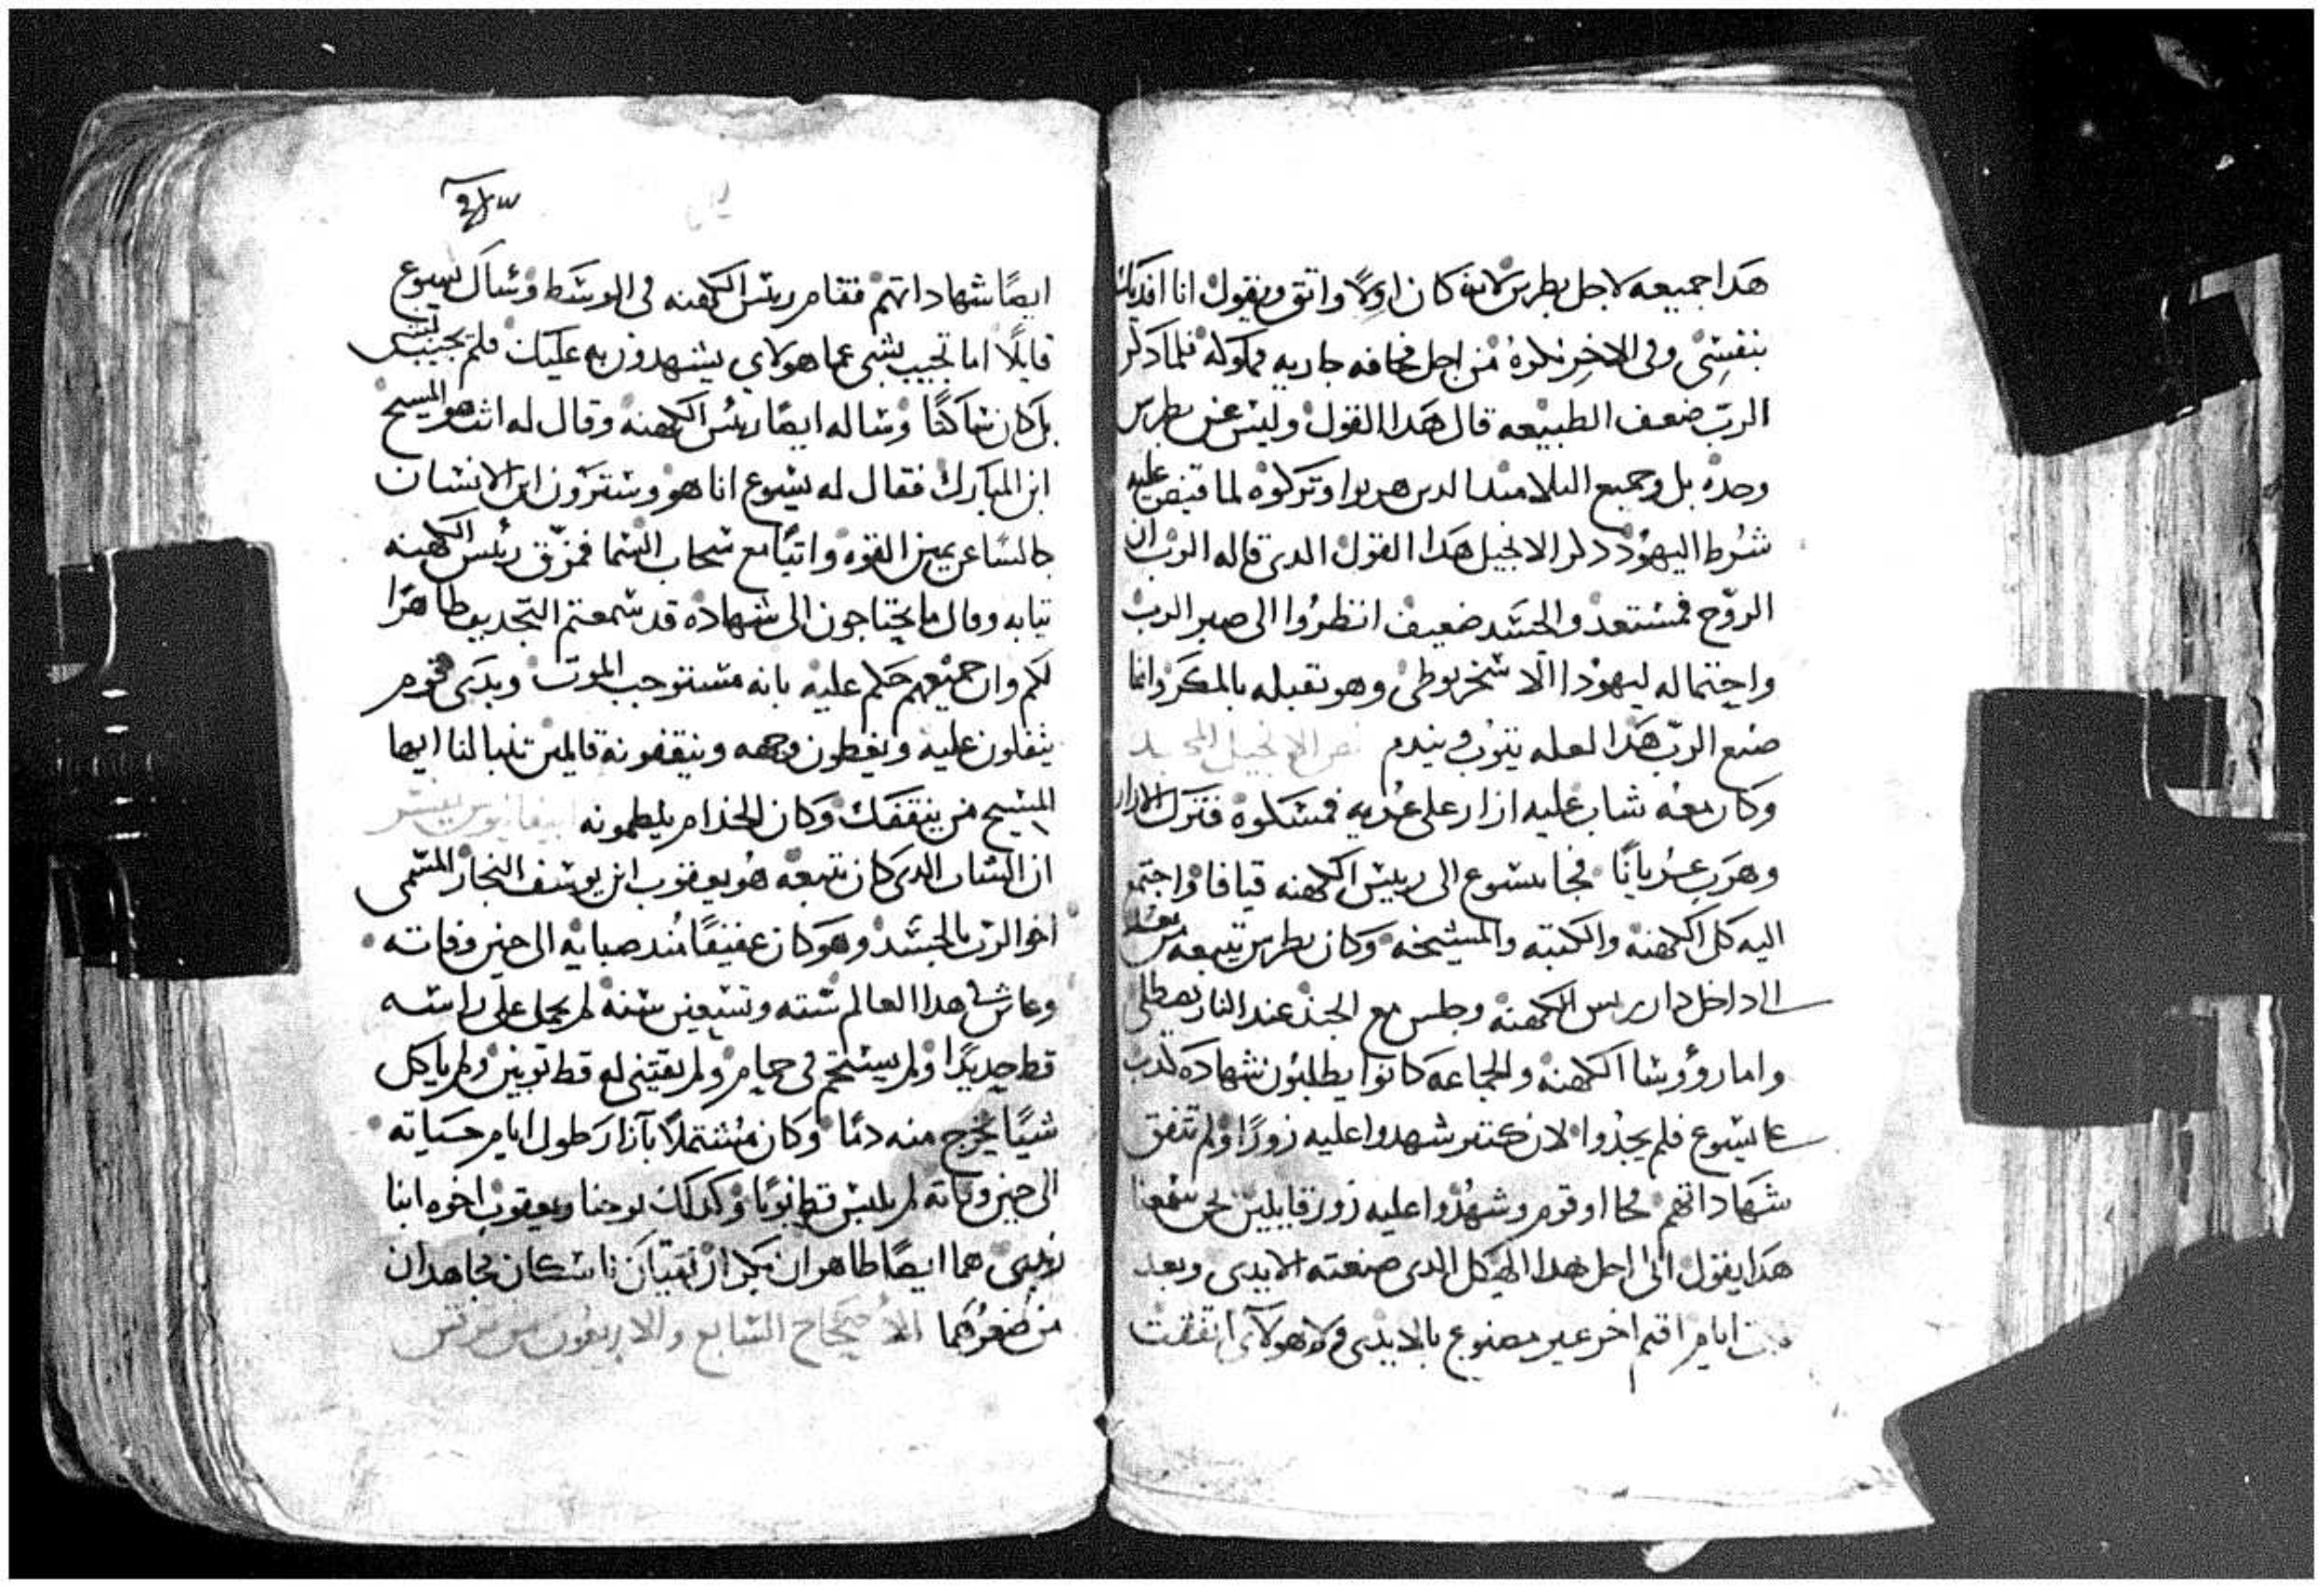 هدا جميعه لاجل بطرس لانه كان اولًا واتق ويقول انا افديك
بنفسي وفي الاخر نكره من اجل مخافه جاريه مملوكه فلما دكر
الرب ضعف الطبيعه قال هدا القول وليس عن بطرس
وحده بل وجميع التلاميد الدين هربوا وتركوه لما قبض عليه
شرط اليهود دكر الانجيل هدا القول الدي قاله الرب ان
الروح فمستعد والجسد ضعيف انظروا الى صبر الرب
واحتماله ليهودا الاسخريوطي وهو تقبله بالمكر وانما
صنع الرب هدا لعله يتوب ويندم نص الانجيل المجيد
وكان معه شاب عليه ازار على عريه فمسكوه فترك الازار
وهرب عريانًا فجا يسوع الى رييس الكهنه قيافا واجتمع
اليه كل الكهنه والكتبه والمشيخه وكان بطرس تتبعه من بعد
الى داخل دار رييس الكهنه وجلس مع الجند عند النار يصطلي
واما رووسا الكهنه والجماعه كانوا يطلبون شهادة كدب
على يسوع فلم يجدوا لان كتير شهدوا عليه زورًا ولم تتفق
شهاداتهم فجااو قوم وشهدوا عليه زور قايلين نحن سمعنا
هدا يقول اني احل هدا الهيكل الدي صنعته الايدي وبعد
ايام اقيم اخر غير مصنوع بالايدي ولا هولاي اتفقت
ايضًا شهاداتهم فقام رييس الكهنه في الوسط وسال يسوع
قايلًا اما تجيب بشي عما هولاي يشهدون به عليك فلم يجيب بشي
بل كان ساكتًا وساله ايضًا رييس الكهنه وقال له انت هو المسيح
ابن المبارك فقال له يسوع انا هو وسترون ابن الانسان
جالسًا عن يمين القوه واتيًا مع سحاب السما فمزق رييس الكهنه
تيابه وقال ما يحتاجون الى شهاده قد سمعتم التجديف ظاهرًا
لكم وان جميعهم حكم عليه بانه مستوجب الموت وبدى قوم
يتفلون عليه ويغطون وجهه وينقفونه قايلين تنبا لنا ايها
المسيح من ينقفك وكان الخدام يلطمونه ابيفانيوس يفسر
ان الشاب الدي كان تتبعه هو يعقوب ابن يوسف النجار المسمى
اخو الرب بالجسد وهو كان عفيفًا مند صبايه الى حين وفاته
وعاش في هدا العالم سته وتسعين سنه لم يحمل على راسه
قط حديدًا ولم يستحم في حمام ولم يقتني له قط توبين ولم ياكل
شيًا يخرج منه دمًا وكان مشتملًا بآزار طول ايام حياته
الى حين وفاته لم يلبس قط توبًا وكدلك يوحنا ويعقوب اخوه ابنا
زبدى هما ايضًا طاهران بكران نقيان ناسكان مجاهدان
من صغرهما الاصحاح السابع والاربعون من مرقس